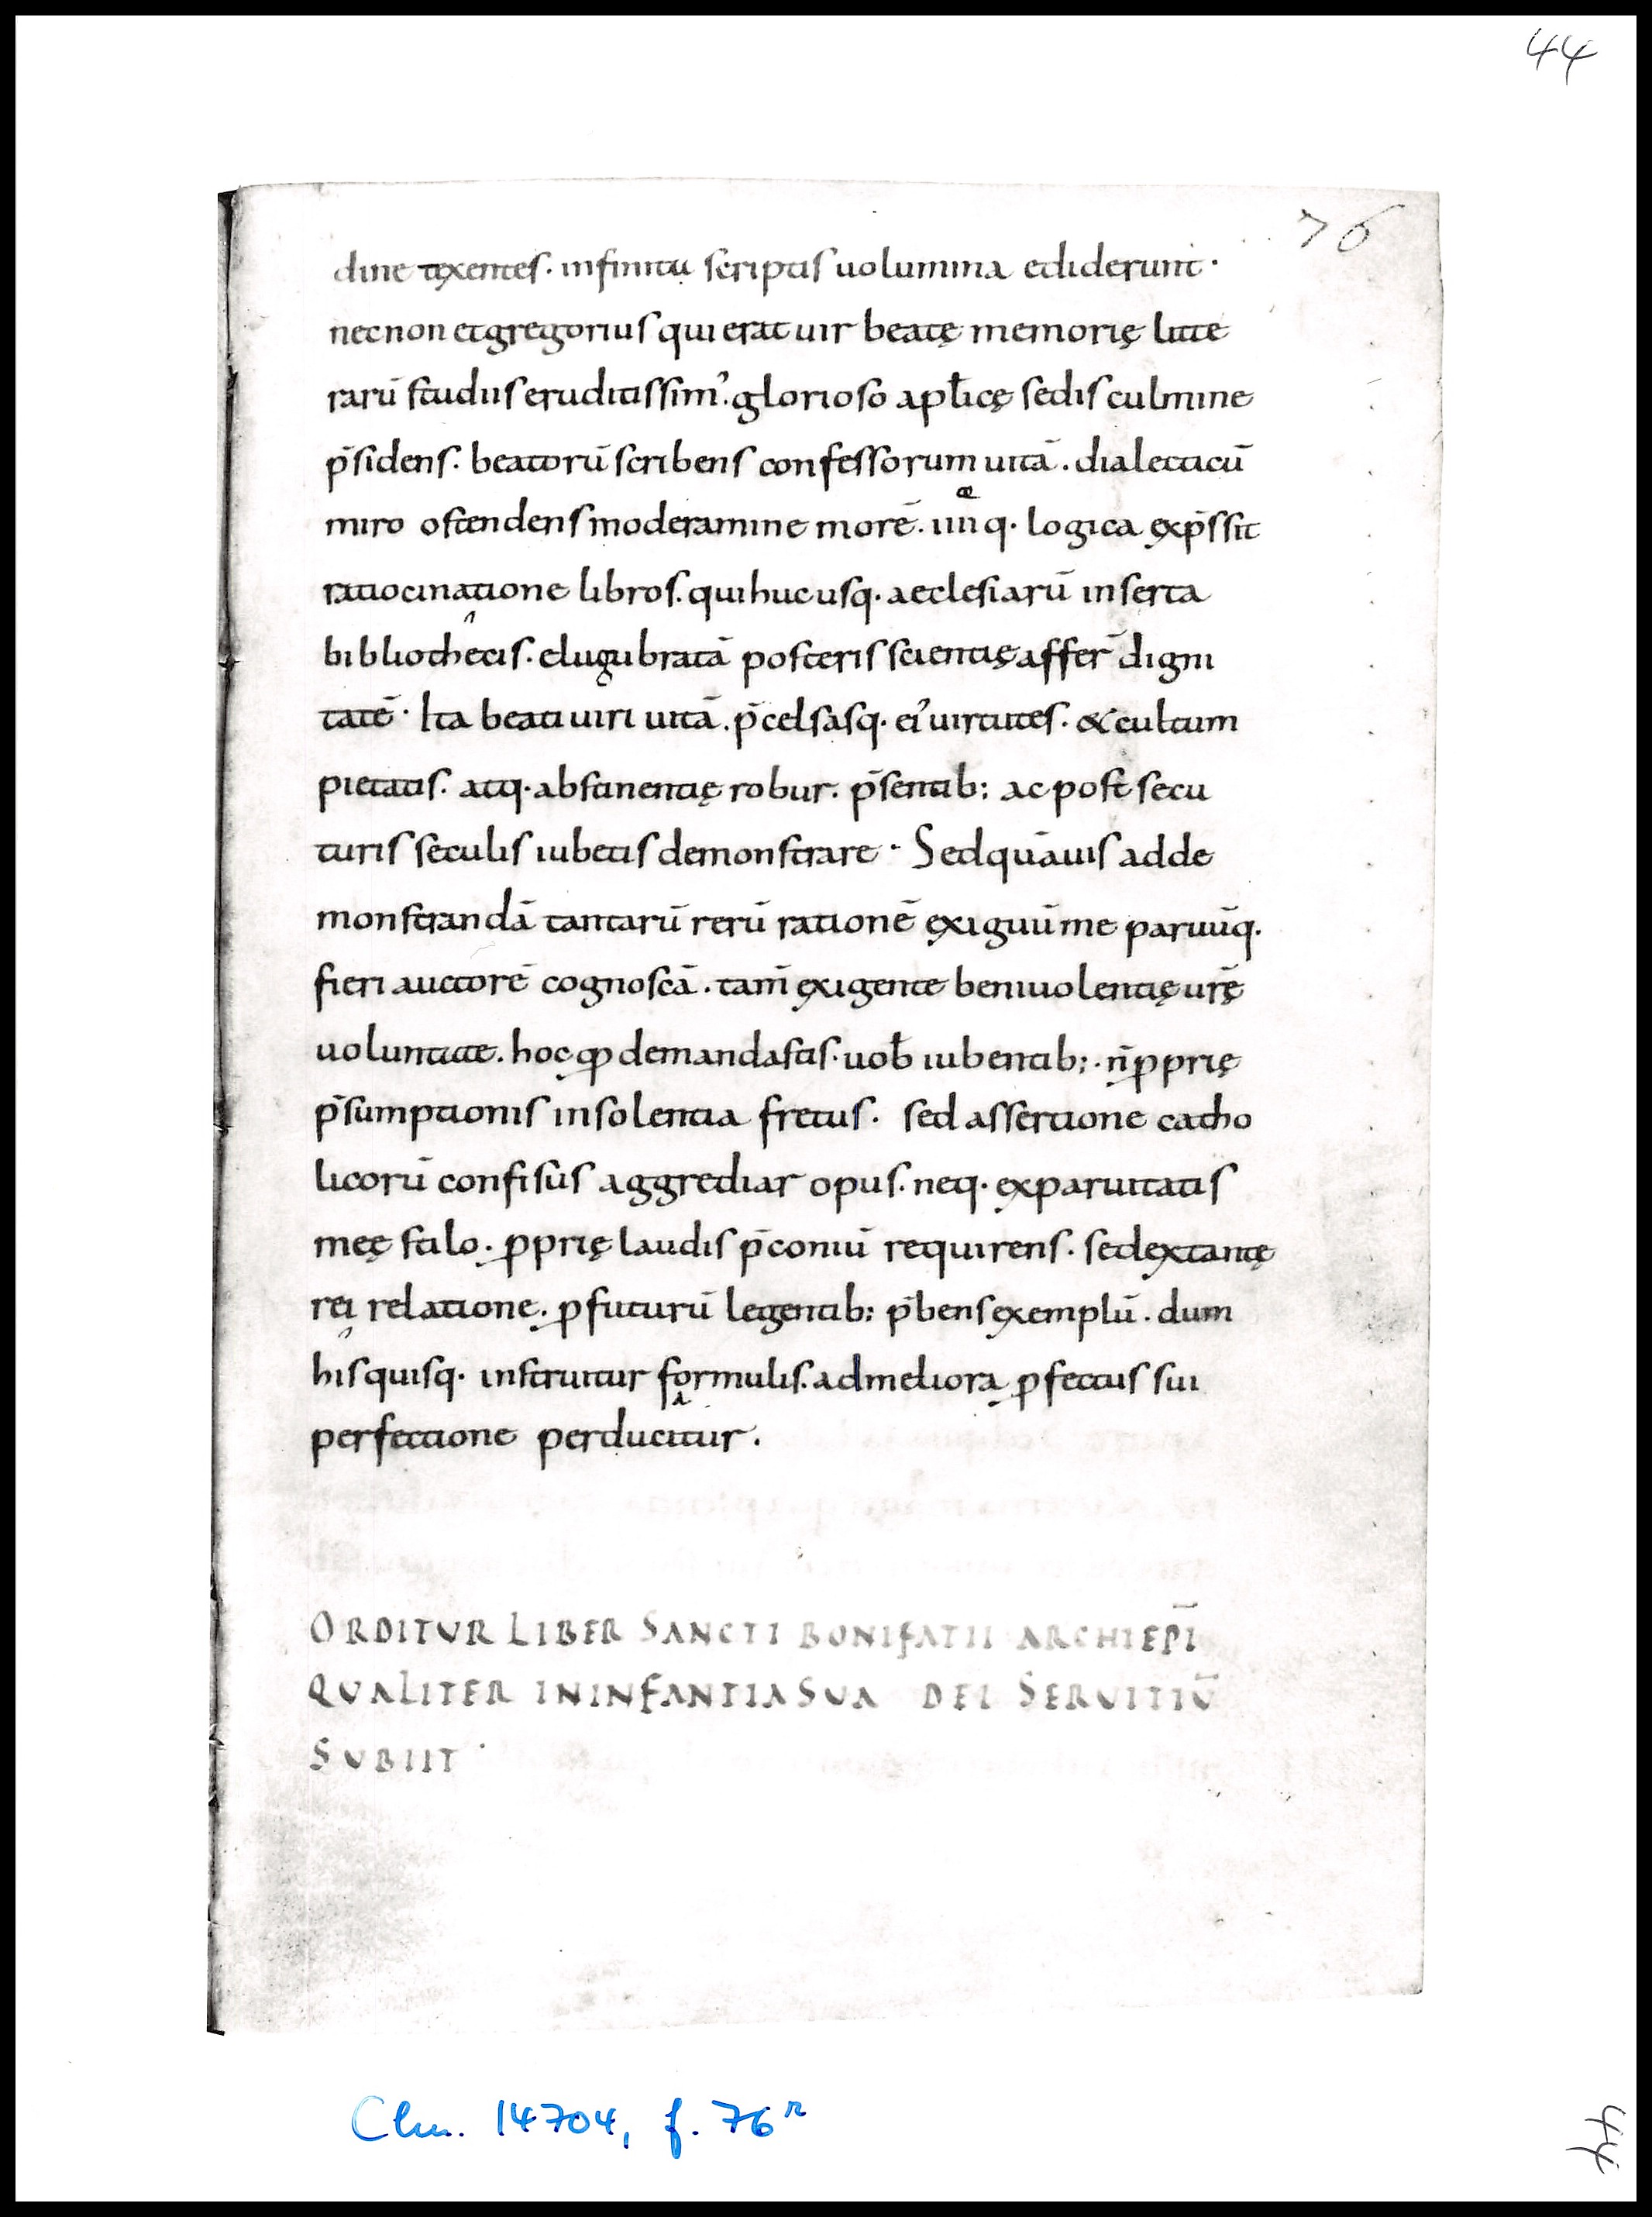 44
76
dine texentes. infinita scriptis uolumina ediderunt.
necnon etgregorius qui erat uir beatę memorię litte
rarū studiis eruditissim᾿. glorioso apłicę sedis culmine
p̄sidens. beatorū scribens confessorum uitā. dialecticū
miro ostendens moderamine morē. iiii q. logica exp̄ssit
ratiocinatione libros. qui hucusq. aeclesiarū inserta
bibliothecis. elugubratā posteris scientię affer̄ digni
tatē. Ita beati uiri uitā. p̄celsasq. ei᾿ uirtutes. & cultum
pietatis. atq. abstinentię robur. p̄sentib; ac post secu
turis seculis iubetis demonstrare. Sed quāuis adde
monstrandā tantarū rerū rationē exiguū me paruūq.
fieri auctorē cognoscā. tam̄ exigente beniuolentię ur̄ę
uoluntate. hoc qđ demandastis. uob̄ iubentib;. n̄ ꝓprię
p̄sumptionis insolentia fretus. sed assertione catho
licorū confisus aggrediar opus. neq. ex paruitatis
meę stilo. ꝓprię laudis p̄coniū requirens. sed extantę
rei relatione. ꝓfuturū legentib; p̄bens exemplū. dum
his quisq. instruitur formulis. ad meliora ꝓfectus sui
perfectione perducitur.
ORDITUR LIBER SANCTI BONIFATII ARCHIEPĪ
QUALITER IN INFANTIA SUA DEI SERUITIŪ
SUBIIT.
Clm. 14704, f. 76r
44